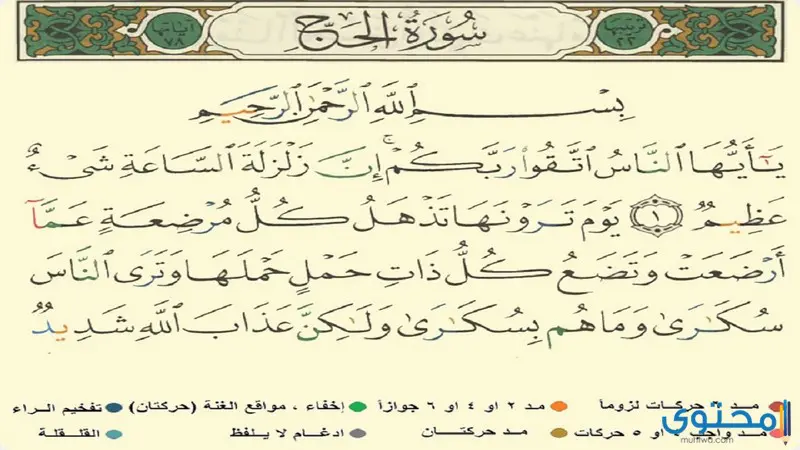 ترتيبها ٢٢
سُورَةُ الحَجِّ
آياتها ٧٨
بِسْمِ ٱللَّهِ ٱلرَّحْمَٰنِ ٱلرَّحِيمِ
يَٰٓأَيُّهَا ٱلنَّاسُ ٱتَّقُوا۟ رَبَّكُمْ ۚ إِنَّ زَلْزَلَةَ ٱلسَّاعَةِ شَىْءٌ
عَظِيمٌ ١ يَوْمَ تَرَوْنَهَا تَذْهَلُ كُلُّ مُرْضِعَةٍ عَمَّآ
أَرْضَعَتْ وَتَضَعُ كُلُّ ذَاتِ حَمْلٍ حَمْلَهَا وَتَرَى ٱلنَّاسَ
سُكَٰرَىٰ وَمَا هُم بِسُكَٰرَىٰ وَلَٰكِنَّ عَذَابَ ٱللَّهِ شَدِيدٌ
مد ٦ حركات لزوماً مد ٢ او ٤ او ٦ جوازاً إخفاء ، مواقع الغنة (حركتان) تفخيم الراء
مد واجب ٤ او ٥ حركات مد حركتان ادغام لا يلفظ القلقلة
محتوى